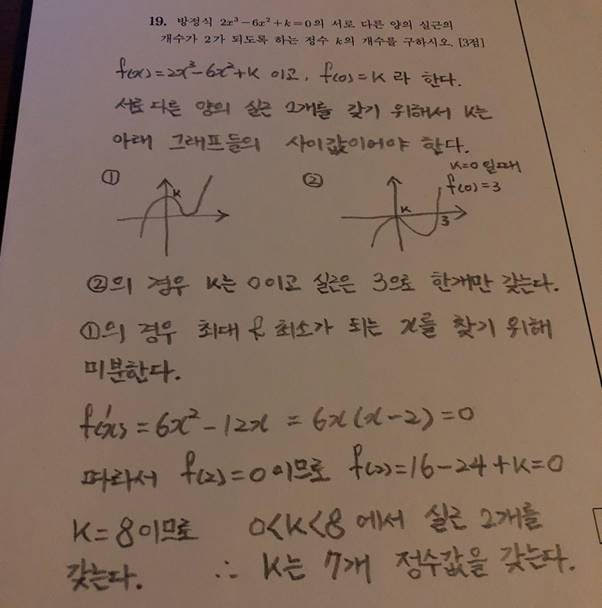 19. 방정식 2x³-6x²+k=0의 서로 다른 양의 실근의
개수가 2가 되도록 하는 정수 k의 개수를 구하시오. [3점]
f(x)=2x³-6x²+k 이고, f(0)=k 라 한다.
서로 다른 양의 실근 2개를 갖기 위해서 k는
아래 그래프들의 사이값이어야 한다.
① k
② k 3 k=0 일때
f(0)=3
②의 경우 k는 0이고 실근은 3으로 한개만 갖는다.
①의 경우 최대 & 최소가 되는 x를 찾기 위해
미분한다.
f'(x) = 6x²-12x = 6x(x-2)=0
따라서 f(2)=0 이므로 f(2)=16-24+k=0
k=8이므로 0<k<8 에서 실근 2개를
갖는다. ∴ k는 7개 정수값을 갖는다.